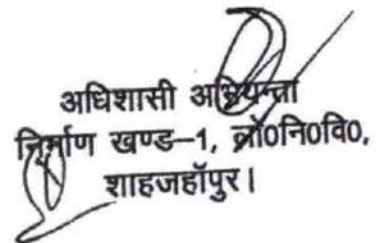 अधिशासी अभियन्ता
निर्माण खण्ड–1, लो०नि०वि०,
शाहजहॉपुर।